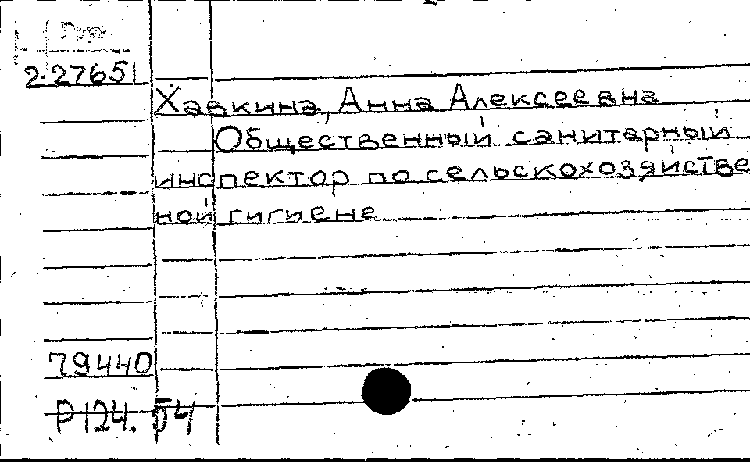 2-27651
Хавкина, Анна Алексеевна
Общественный санитарный
инспектор по сельскохозяйстве
ной гигиене
79440
Р124. 54